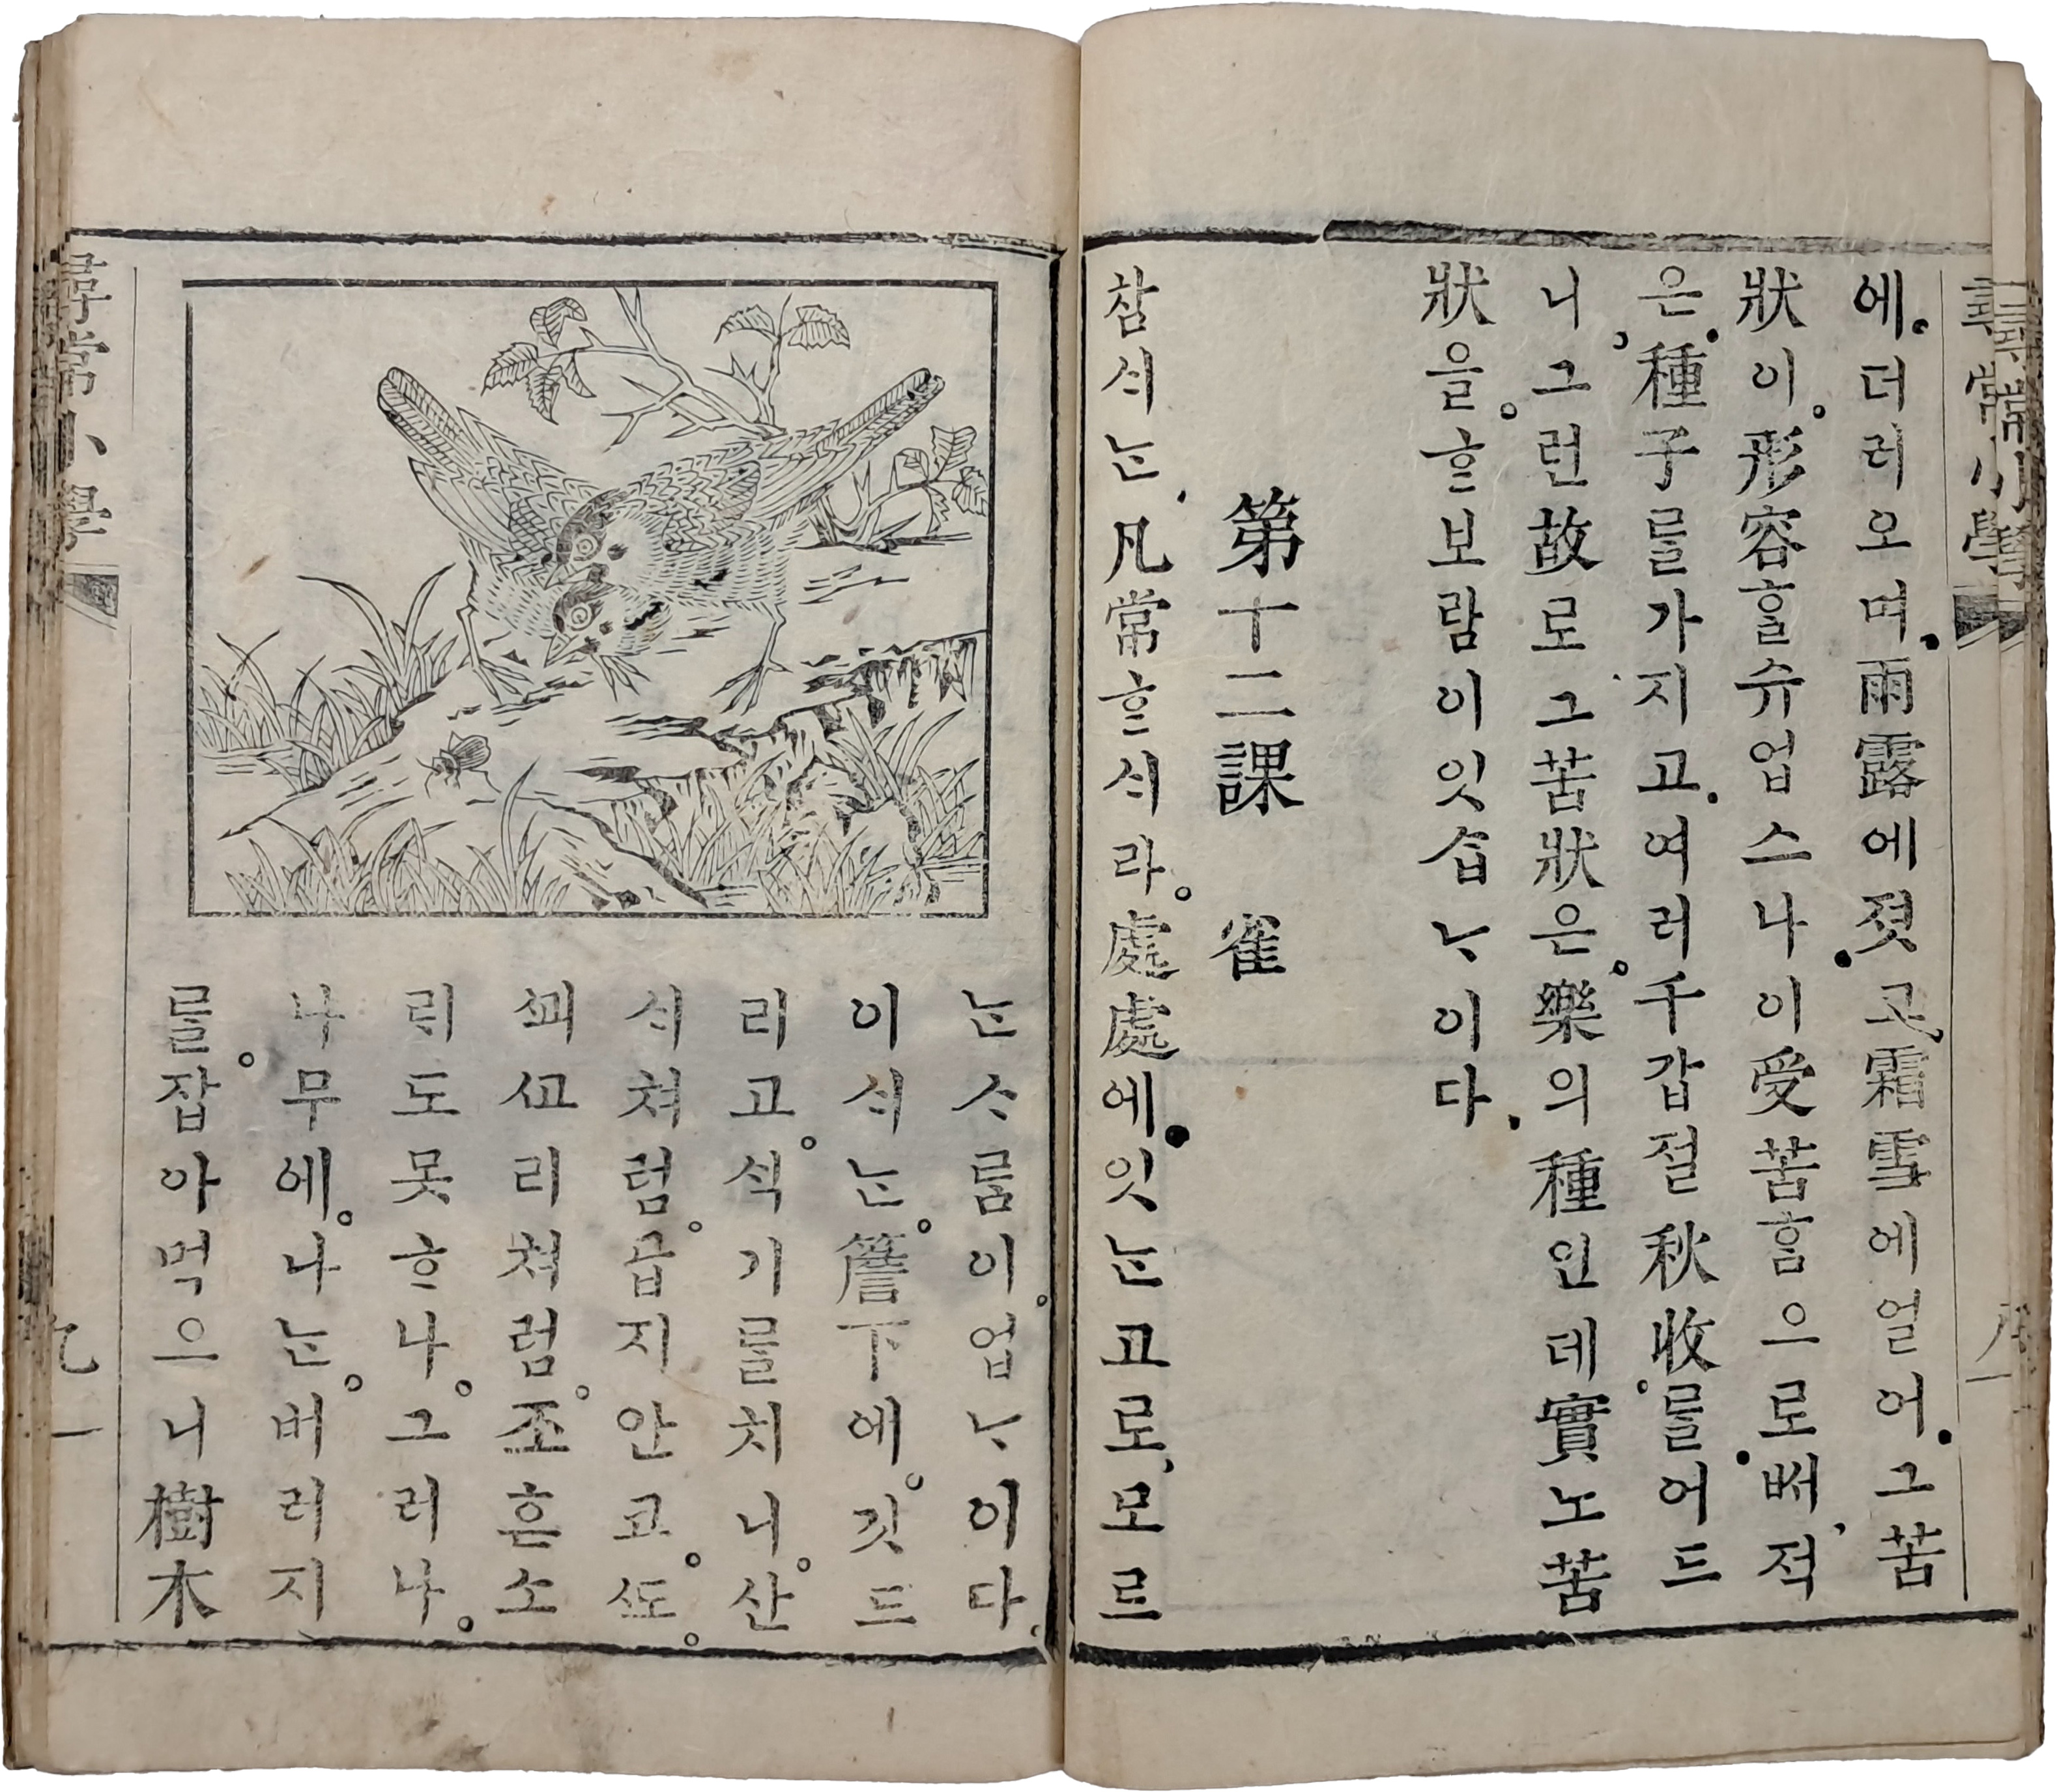 尋常小學
에더러오며雨露에졋고霜雪에얼어그苦
狀이形容ᄒᆞᆯ슈업스나이受苦ᄒᆞᆷ으로ᄡᅥ젹
은種子를가지고여러千갑졀秋收를어드
니그런故로그苦狀은樂의種인데實노苦
狀을ᄒᆞᆫ보람이잇ᄉᆞᆸᄂᆞ이다
第十二課 雀
참ᄉᆡᄂᆞᆫ凡常ᄒᆞᆫᄉᆡ라處處에잇ᄂᆞᆫ고로모르
ᄂᆞᆫᄉᆞ름이업ᄂᆞ이다
이ᄉᆡᄂᆞᆫ簷下에깃드
리고ᄉᆡᆨ기를치니산
ᄉᆡ쳐럼곱지안고ᄯᅩ
ᄭᅬᄭᅩ리쳐럼조흔소
ᄅᆡ도못ᄒᆞ나그러나
나무에나ᄂᆞᆫ버러지
를잡아먹으니樹木
尋常小學